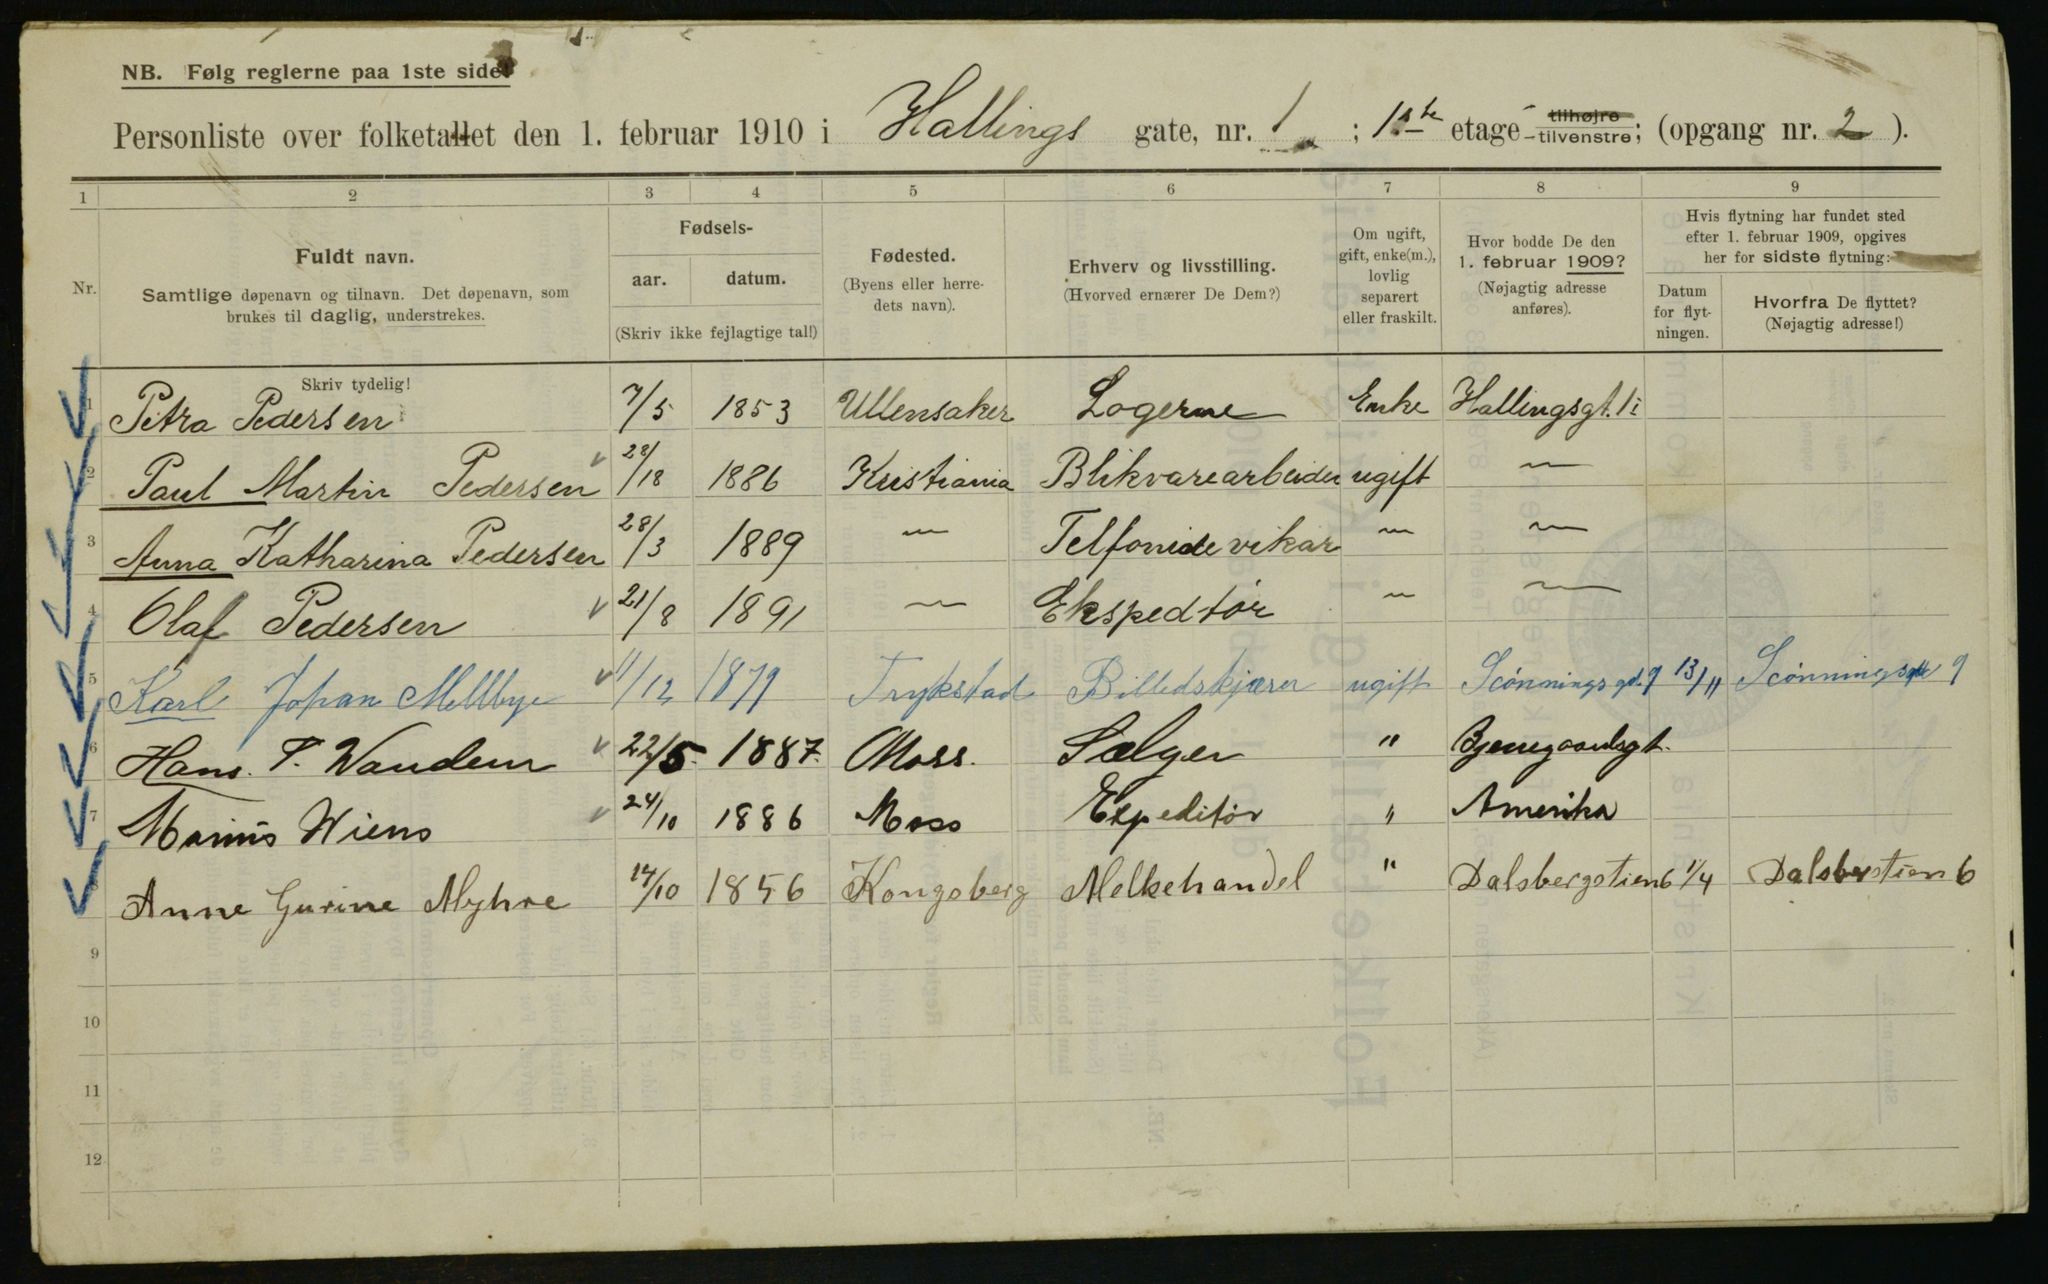 NB. Følg reglerne paa 1ste side!
Personliste over folketallet den 1. februar 1910 i Hallings gate, nr. 1 ; 1ste etage tilhøjre tilvenstre; (opgang nr. 2 ).
1 2 3 4 5 6 7 8 9
Nr.
Fuldt navn.
Samtlige døpenavn og tilnavn. Det døpenavn, som
brukes til daglig, understrekes.
Skriv tydelig!
Fødsels-
aar. datum.
(Skriv ikke fejlagtige tal!)
Fødested.
(Byens eller herre-
dets navn).
Erhverv og livsstilling.
(Hvorved ernærer De Dem?)
Om ugift,
gift, enke(m.),
lovlig
separert
eller fraskilt.
Hvor bodde De den
1. februar 1909?
(Nøjagtig adresse
anføres).
Hvis flytning har fundet sted
efter 1. februar 1909, opgives
her for sidste flytning:
Datum
for flyt-
ningen.
Hvorfra De flyttet?
(Nøjagtig adresse!)
1 Petra Pedersen 7/5 1853 Ullensaker Logerne Enke Hallingsgt. 1
2 Paul Martin Pedersen 28/18 1886 Kristiania Blikvarearbeider ugift —
3 Anna Katharina Pedersen 28/3 1889 — Telfonide vikar — —
4 Olaf Pedersen 21/8 1891 — Ekspedtør — —
5 Karl Johan Mellbye 11/12 1879 Trykstad Billedskjærer ugift Scønningsgt. 9 13/11 Scønningsgt 9
6 Hans. T. Wandem 22/5. 1887. Moss. Sælger " Bjerregaardsgt.
7 Marius Wiens 24/10 1886 Moss Expeditør " Amerika
8 Anne Gurine Myhre 14/10 1856 Kongsberg Melkehandel " Dalsbergstien 6 1/4 Dalsberstien 6
9
10
11
12